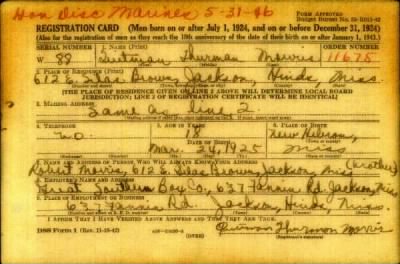 Hon Disc Marines 5-31-46
FORM APPROVED
REGISTRATION CARD (Men born on or after July 1, 1924, and on or before December 31, 1924)
(Also for the registration of men as they reach the 18th anniversary of the date of their birth on or after January 1, 1925.)
SERIAL NUMBER 1. NAME (Print) ORDER NUMBER
W 88 Thurman Morris 11675
2. PLACE OF RESIDENCE (Print)
612 E. Silas Brown, Jackson, Hinds, Miss.
(THE PLACE OF RESIDENCE GIVEN ON LINE 2 ABOVE WILL DETERMINE LOCAL BOARD
JURISDICTION; LINE 2 OF REGISTRATION CERTIFICATE WILL BE IDENTICAL)
3. MAILING ADDRESS
Same as line 2.
4. TELEPHONE 5. AGE IN YEARS 6. PLACE OF BIRTH
no 18 New Hebron,
DATE OF BIRTH
Mar. 24, 1925 Miss
7. NAME AND ADDRESS OF PERSON WHO WILL ALWAYS KNOW YOUR ADDRESS (Brother)
Robert Morris, 612 E. Silas Brown, Jackson, Miss
8. EMPLOYER'S NAME AND ADDRESS
Great Southern Box Co, 637 Fannin Rd. Jackson, Miss
9. PLACE OF EMPLOYMENT OR BUSINESS
637 Fannin Rd. Jackson, Hinds, Miss.
I AFFIRM THAT I HAVE VERIFIED ABOVE ANSWERS AND THAT THEY ARE TRUE.
DSS Form 1 (OVER) Thurman Morris
(Registrant's signature)